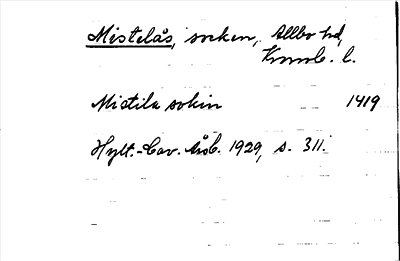 Mistelås, socken, Allbo hd,
Kronob. l.
Mistila sokin 1419
Hylt.-Cav. årsb. 1929, s. 311.